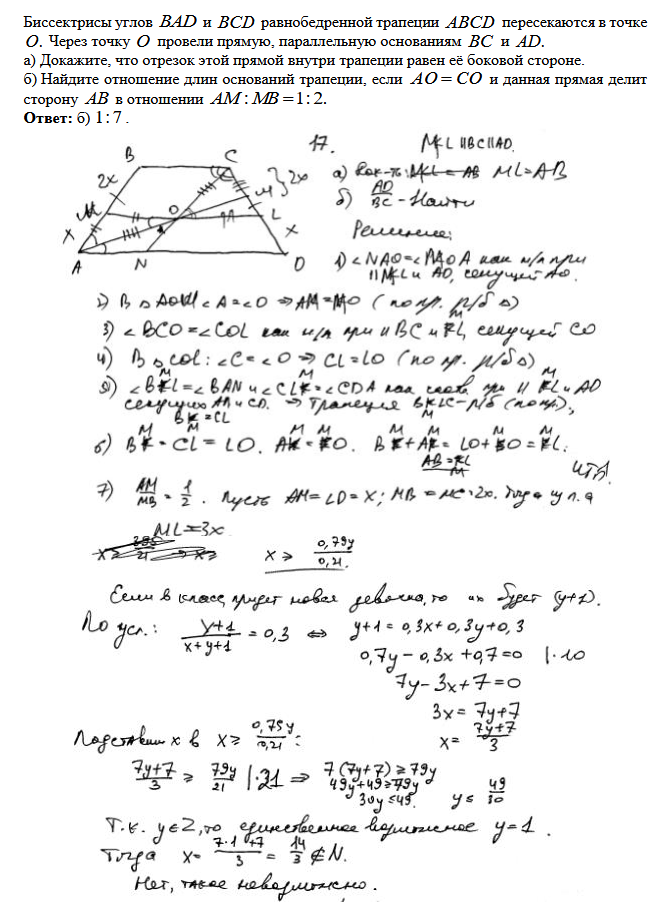 Биссектрисы углов BAD и BCD равнобедренной трапеции ABCD пересекаются в точке
O. Через точку O провели прямую, параллельную основаниям BC и AD.
а) Докажите, что отрезок этой прямой внутри трапеции равен её боковой стороне.
б) Найдите отношение длин оснований трапеции, если AO=CO и данная прямая делит
сторону AB в отношении AM:MB=1:2.
Ответ: б) 1:7.
17. ML || BC || AD.
B C
2x 2x
M O 4 L
x x
A N D
а) Док-ть: ML = AB
б) AD/BC - Найти
Решение:
1) ∠NAO=∠MOA как н/л при
|| ML и AD, секущей AO.
2) В △AOM ∠A=∠O ⇒ AM=MO (по пр. р/б △)
3) ∠BCO=∠COL как н/л при || BC и ML, секущей CO
4) В △COL: ∠C=∠O ⇒ CL=LO (по пр. р/б △)
5) ∠BML=∠BAN и ∠CLM=∠CDA как соотв. при || ML и AD
секущих AB и CD. ⇒ Трапеция BMLC - р/б (по пр.),
BM=CL
6) BM=CL=LO. AM=MO. BM+AM=LO+MO=ML.
AB=ML
ЧТД.
7) AM/MB = 1/2. Пусть AM=LD=x; MB=MC=2x. Тогда из п. а
ML=3x
x ≥ 0,79y/0,21.
Если в класс придет новая девочка, то их будет (y+1).
По усл.: (y+1)/(x+y+1) = 0,3 ⇔ y+1=0,3x+0,3y+0,3
0,7y-0,3x+0,7=0 |·10
7y-3x+7=0
3x=7y+7
x=(7y+7)/3
Подставим x в x ≥ 0,79y/0,21:
(7y+7)/3 ≥ 79y/21 |·21 ⇒ 7(7y+7)≥79y
49y+49≥79y
30y≤49. y≤ 49/30
Т.к. y∈Z, то единственное возможное y=1.
Тогда x=(7·1+7)/3 = 14/3 ∉ N.
Нет, такое невозможно.